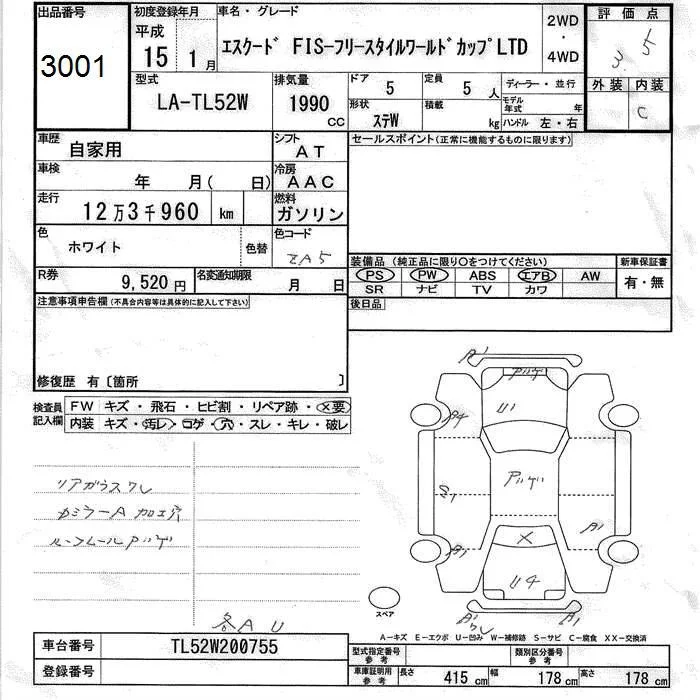 出品番号
3001
初度登録年月
平成
15 1月
車名・グレード
エスクード FIS-フリースタイルワールドカップLTD
2WD
・
4WD
評価点
3.5
外装 内装
C
型式
LA-TL52W
排気量
1990
CC
ドア
5
定員
5人
ディーラー・並行
形状
ステW
積載
kg
モデル年式 年
ハンドル 左・右
車歴
自家用
シフト
AT
セールスポイント(正常に機能するものに限ります)
車検
年 月( 日)
冷房
AAC
走行
12万3千960 km
燃料
ガソリン
色
ホワイト
色替
色コード
ZA5
装備品 (純正品に限り○をつけてください)
新車保証書
PS PW ABS エアB AW
SR ナビ TV カワ
有・無
R券
9,520円
名変通知期限
月 日
後日品
注意事項申告欄(不具合内容等は具体的に記入して下さい)
修復歴 有〔箇所 〕
検査員
記入欄
FW キズ・飛石・ヒビ割・リペア跡・X要
内装 キズ・汚レ・コゲ・穴・スレ・キレ・破レ
A1
アバゲ
U1
A4
アバゲ
S1
A1
A1
X
U4
スペア
リアガラスワレ
カミラーA 加工穴
ルーフレールアバゲ
各AU
A1
A-キズ E-エクボ U-凹み W-補修跡 S-サビ C-腐食 XX-交換済
車台番号
TL52W200755
登録番号
型式指定番号
参考
類別区分番号
参考
車庫証明用
参考
長さ 415cm 幅 178cm 高さ 178cm